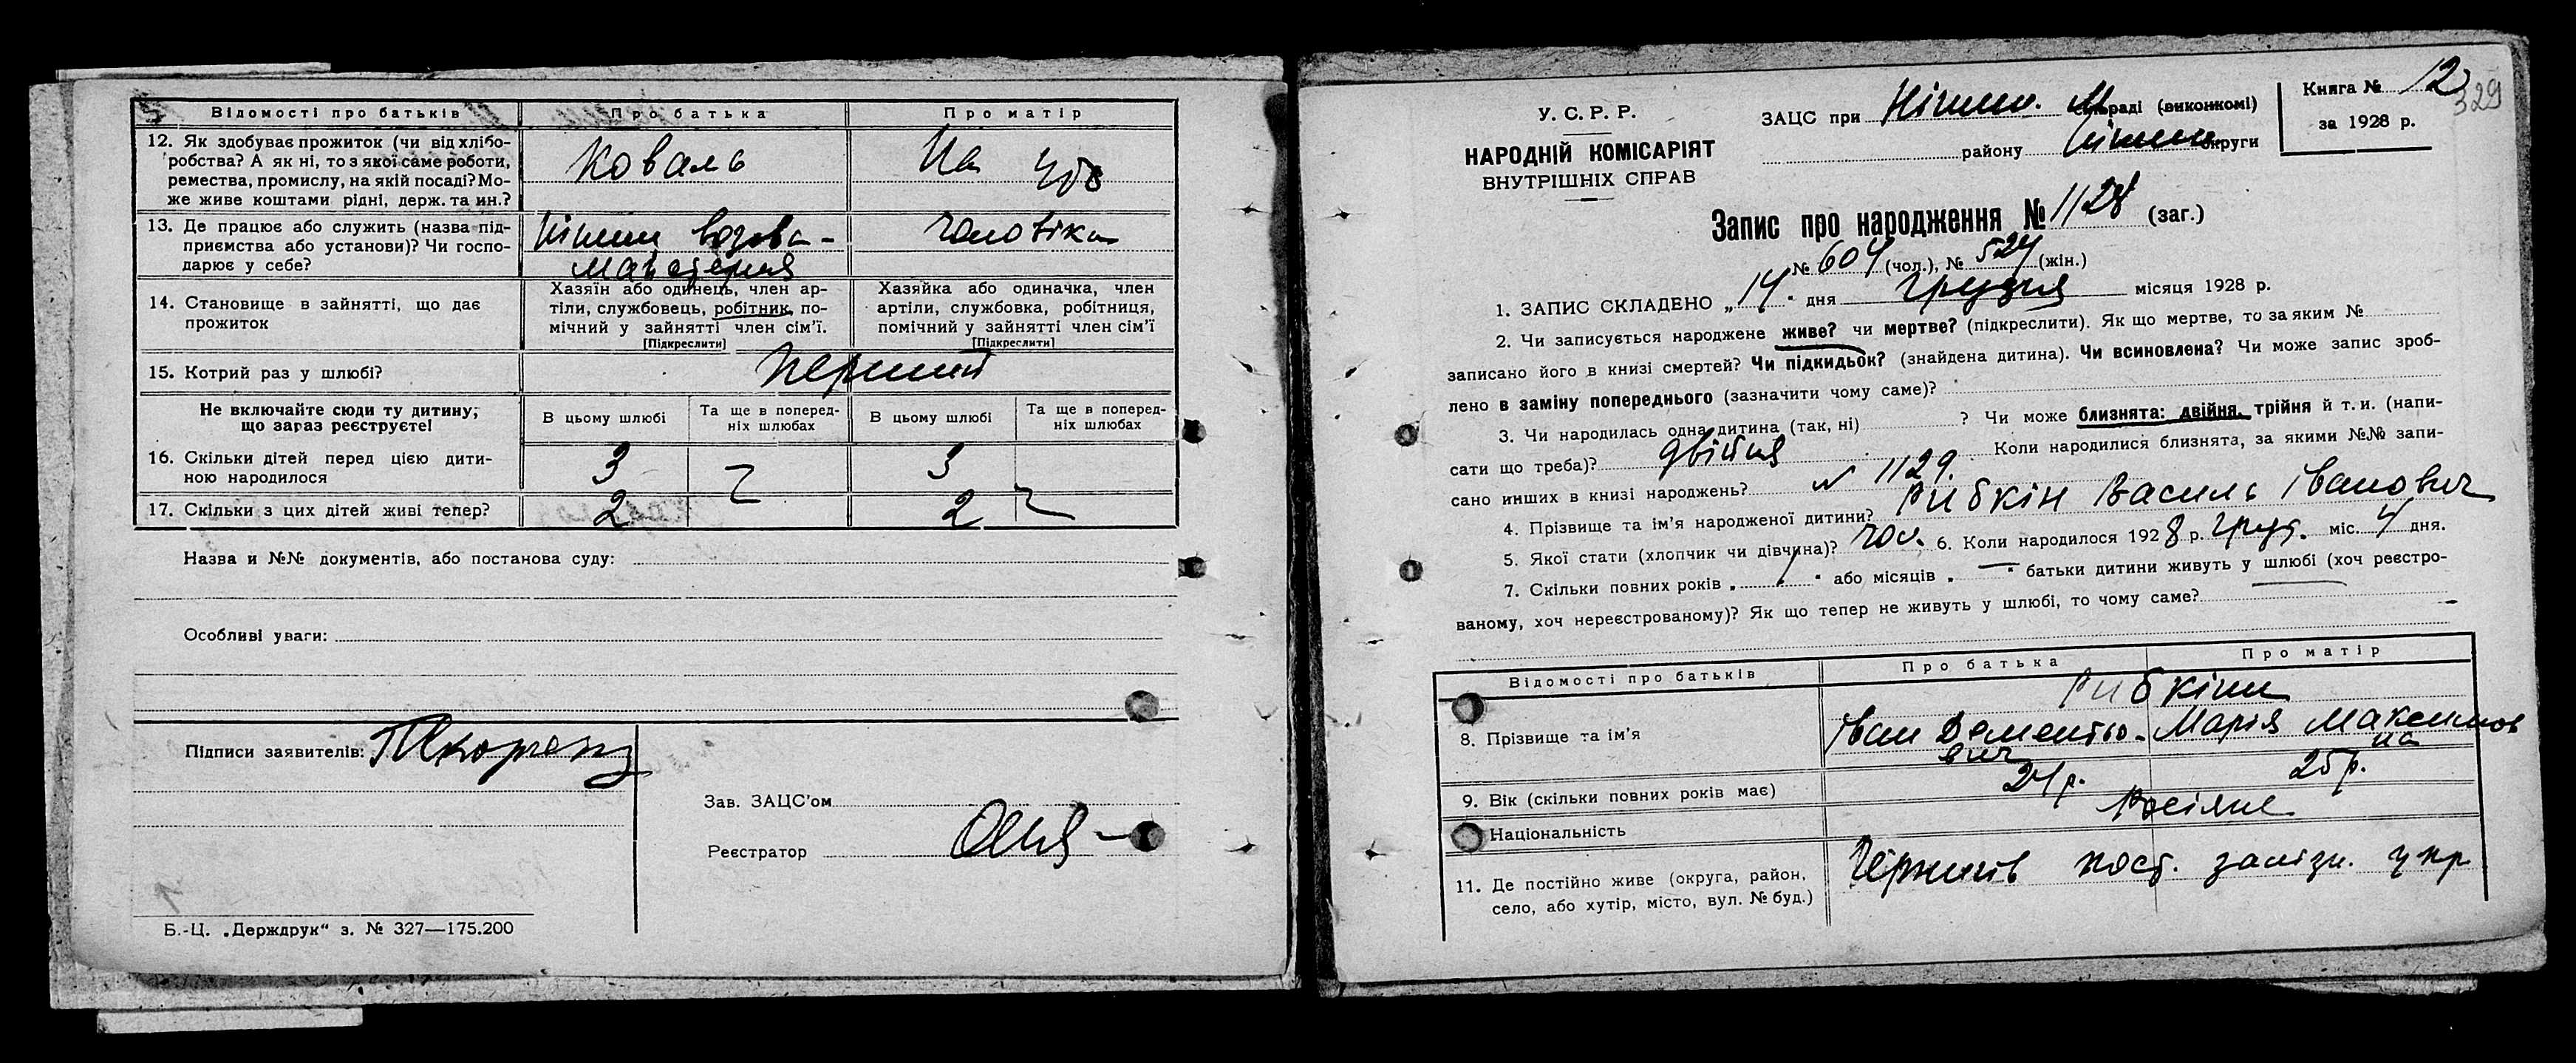 Відомості про батьків Про батька Про матір
12. Як здобуває прожиток (чи від хлібо-
робства? А як ні, то з якої саме роботи,
ремества, промислу, на якій посаді? Мо-
же живе коштами рідні, держ. та ин.?
Коваль На
13. Де працює або служить (назва під-
приємства або установи)? Чи госпо-
дарює у себе?
чоловіка
14. Становище в зайнятті, що дає
прожиток
Хазяїн або одинець, член ар-
тіли, службовець, робітник, по-
мічний у зайнятті член сім'ї.
[Підкреслити]
Хазяйка або одиначка, член
артіли, службовка, робітниця,
помічний у зайнятті член сім'ї
[Підкреслити]
15. Котрий раз у шлюбі?
перший
Не включайте сюди ту дитину,
що зараз реєструєте!
В цьому шлюбі
Та ще в поперед-
ніх шлюбах
В цьому шлюбі
Та ще в поперед-
ніх шлюбах
16. Скільки дітей перед цією дити-
ною народилося
3 3
17. Скільки з цих дітей живі тепер?
2 2
Назва и №№ документів, або постанова суду:
Особливі уваги:
Підписи заявителів:
Зав. ЗАЦС'ом
Реєстратор
Б.-Ц. „Держдрук" з. № 327—175.200
У. С. Р. Р.
НАРОДНІЙ КОМІСАРІЯТ
ВНУТРІШНІХ СПРАВ
ЗАЦС при Ніжин. М раді (виконкомі)
району Ніжин. округи
Книга № 12
за 1928 р.
329
Запис про народження № 1128 (заг.)
№ 604 (чол.), № 524 (жін.)
1. ЗАПИС СКЛАДЕНО „14" дня грудня місяця 1928 р.
2. Чи записується народжене живе? чи мертве? (підкреслити). Як що мертве, то за яким №
записано його в книзі смертей? Чи підкидьок? (знайдена дитина). Чи всиновлена? Чи може запис зроб-
лено в заміну попереднього (зазначити чому саме)?
3. Чи народилась одна дитина (так, ні) ? Чи може близнята: двійня, трійня й т. и. (напи-
сати що треба)? двійня Коли народилися близнята, за якими №№ запи-
сано инших в книзі народжень? № 1129.
4. Прізвище та ім'я народженої дитини? Рибкін Василь Іванович
5. Якої стати (хлопчик чи дівчина)? чол. 6. Коли народилося 1928 р. груд. міс. 4 дня.
7. Скільки повних років „ " або місяців „ — " батьки дитини живуть у шлюбі (хоч реєстро-
ваному, хоч нереєстрованому)? Як що тепер не живуть у шлюбі, то чому саме?
Відомості про батьків Про батька Про матір
Рибкіни
8. Прізвище та ім'я
Іван Дементьо-
вич
Марія Максимов
на
9. Вік (скільки повних років має)
24 р. 25 р.
Національність
Росіяне
11. Де постійно живе (округа, район,
село, або хутір, місто, вул. № буд.)